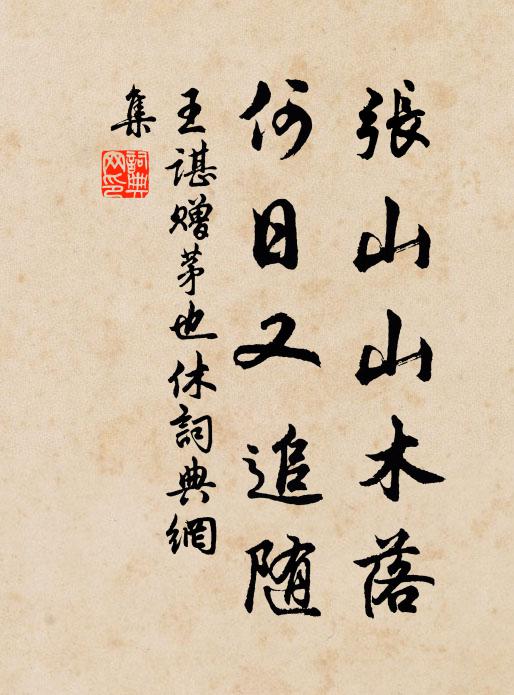 張山山木落
何日又追随
王諶贈茅也休詞典網
集
詞典
网印